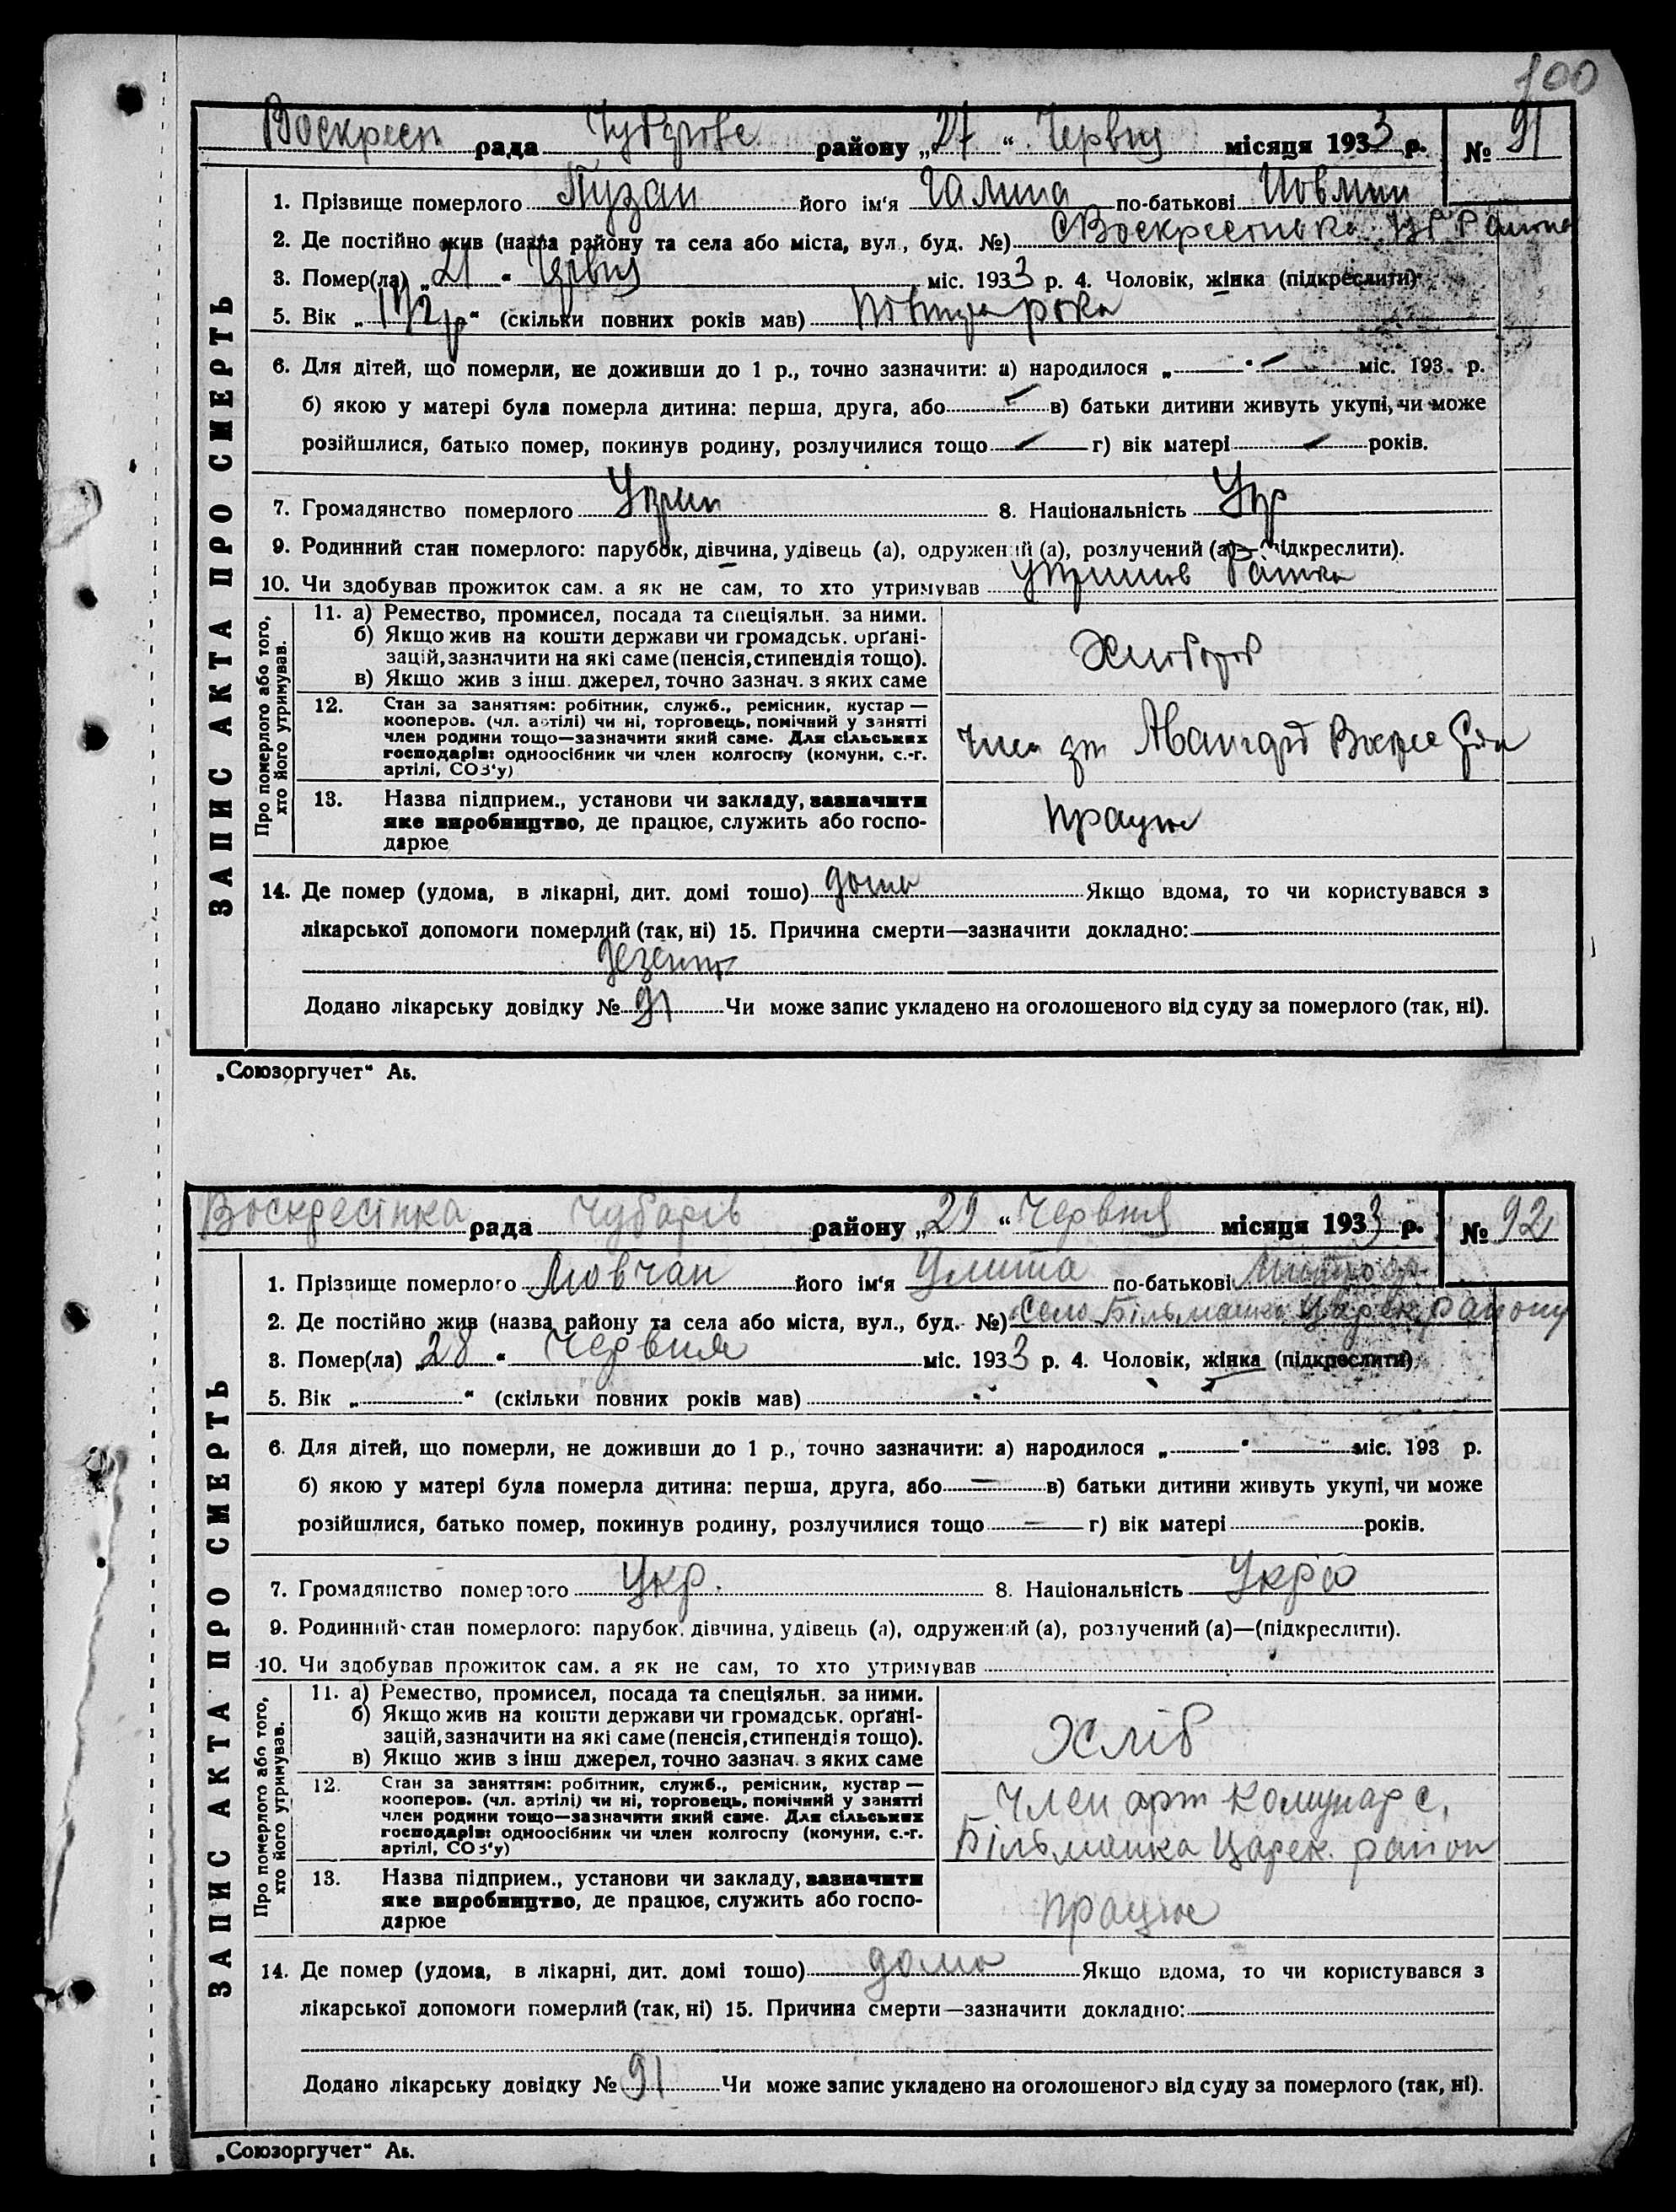 100
Воскресн рада Чубарове району „27“ Червня місяця 1933 р. № 91
ЗАПИС АКТА ПРО СМЕРТЬ
1. Прізвище померлого Пузан його ім'я Галина по-батькові
2. Де постійно жив (назва району та села або міста, вул., буд. №) с Воскресенька Чуб Района
3. Помер(ла) „21“ Червня міс. 1933 р. 4. Чоловік, жінка (підкреслити)
5. Вік „1 1/2 р“ (скільки повних років мав) Повтора рока
6. Для дітей, що померли, не доживши до 1 р., точно зазначити: а) народилося „ “ міс. 193 р.
б) якою у матері була померла дитина: перша, друга, або в) батьки дитини живуть укупі, чи може
розійшлися, батько помер, покинув родину, розлучилися тощо г) вік матері років.
7. Громадянство померлого 8. Національність Укр
9. Родинний стан померлого: парубок, дівчина, удівець (а), одружений (а), розлучений (а)—(підкреслити).
10. Чи здобував прожиток сам. а як не сам, то хто утримував Утримов Батько
Про померлого або того, хто його утримував.
11. а) Ремество, промисел, посада та спеціяльн. за ними.
б) Якщо жив на кошти держави чи громадськ. орґані-
зацій, зазначити на які саме (пенсія, стипендія тощо).
в) Якщо жив з інш. джерел, точно зазнач. з яких саме
Хлібороб
12. Стан за заняттям: робітник, служб., ремісник, кустар —
кооперов. (чл. артілі) чи ні, торговець, помічний у занятті
член родини тощо—зазначити який саме. Для сільських
господарів: одноосібник чи член колгоспу (комуни, с.-г.
артілі, СОЗ'у)
Член Авангард
13. Назва підприєм., установи чи закладу, зазначити
яке виробництво, де працює, служить або госпо-
дарює
працює
14. Де помер (удома, в лікарні, дит. домі тощо) дома Якщо вдома, то чи користувався з
лікарської допомоги померлий (так, ні) 15. Причина смерти—зазначити докладно:
Дезентр
Додано лікарську довідку № 91 Чи може запис укладено на оголошеного від суду за померлого (так, ні).
„Союзоргучет“ Аб.
Воскресінка рада Чубарів району „29“ Червня місяця 1933 р. № 92
ЗАПИС АКТА ПРО СМЕРТЬ
1. Прізвище померлого Мовчан його ім'я Улита по-батькові
2. Де постійно жив (назва району та села або міста, вул., буд. №) село Більманка Царек. району
3. Помер(ла) „28“ Червня міс. 1933 р. 4. Чоловік, жінка (підкреслити)
5. Вік „ “ (скільки повних років мав)
6. Для дітей, що померли, не доживши до 1 р., точно зазначити: а) народилося „ “ міс. 193 р.
б) якою у матері була померла дитина: перша, друга, або в) батьки дитини живуть укупі, чи може
розійшлися, батько помер, покинув родину, розлучилися тощо г) вік матері років.
7. Громадянство померлого Укр. 8. Національність Укр
9. Родинний стан померлого: парубок, дівчина, удівець (а), одружений (а), розлучений (а)—(підкреслити).
10. Чи здобував прожиток сам. а як не сам, то хто утримував
Про померлого або того, хто його утримував.
11. а) Ремество, промисел, посада та спеціяльн. за ними.
б) Якщо жив на кошти держави чи громадськ. орґані-
зацій, зазначити на які саме (пенсія, стипендія тощо).
в) Якщо жив з інш джерел, точно зазнач. з яких саме
Хліб
12. Стан за заняттям: робітник, служб., ремісник, кустар —
кооперов. (чл. артілі) чи ні, торговець, помічний у занятті
член родини тощо—зазначити який саме. Для сільських
господарів: одноосібник чи член колгоспу (комуни, с.-г.
артілі, СОЗ'у)
Член арт Комунар с.
Більманка Царек. район
13. Назва підприєм., установи чи закладу, зазначити
яке виробництво, де працює, служить або госпо-
дарює
працює
14. Де помер (удома, в лікарні, дит. домі тощо) дома Якщо вдома, то чи користувався з
лікарської допомоги померлий (так, ні) 15. Причина смерти—зазначити докладно:
Додано лікарську довідку № 91 Чи може запис укладено на оголошеного від суду за померлого (так, ні).
„Союзоргучет“ Аб.